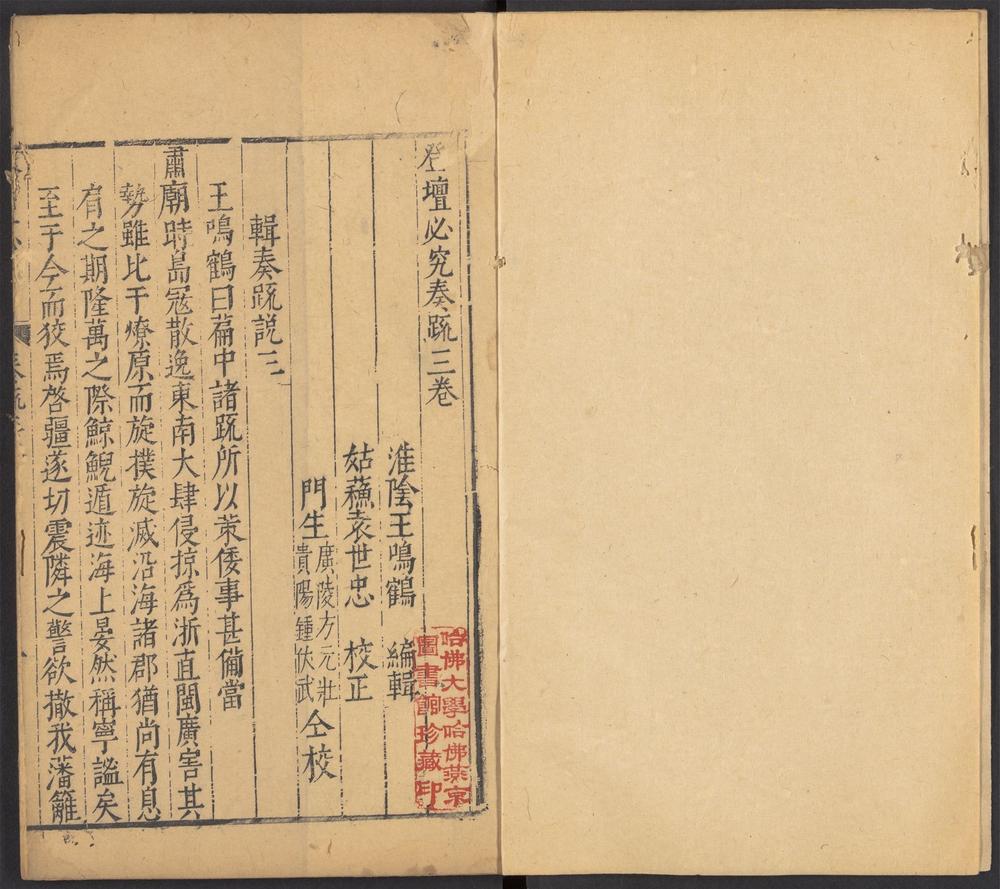 登壇必究奏疏三卷
淮隂王鳴鶴 編輯
姑蘓袁世忠 校正
門生廣陵方元壯貴陽鍾伏武仝校
輯奏疏説三
王鳴鶴曰萹中諸疏所以䇿倭事甚備當
肅廟時島寇散逸東南大肆侵掠爲浙直閩廣害其
勢雖比于燎原而旋撲旋滅沿海諸郡猶尚有息
肩之期隆萬之際鯨鯢遁迹海上晏然稱寧謐矣
至于今而狡焉啓疆遂切震隣之警欲撤我藩籬
哈佛大學哈佛燕京
圖書館珍藏印